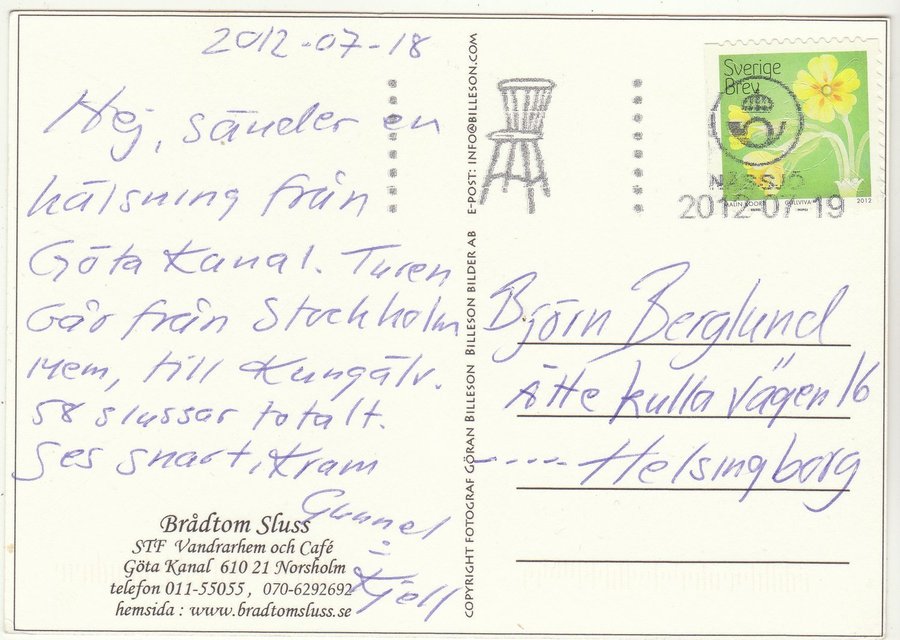 2012-07-18
Hej, sänder en
hälsning från
Göta Kanal. Turen
går från Stockholm
Mem, till Kungälv.
58 slussar totalt.
Ses snart, Kram
Gunnel
Kjell
Brådtom Sluss
STF Vandrarhem och Café
Göta Kanal 610 21 Norsholm
telefon 011-55055, 070-6292692
hemsida : www.bradtomsluss.se
COPYRIGHT FOTOGRAF GÖRAN BILLESON BILLESON BILDER AB E-POST: INFO@BILLESON.COM
Sverige
Brev
NÄSSJÖ
2012-07-19
GULLVIVA
2012
Björn Berglund
Ättekulla vägen 16
Helsingborg